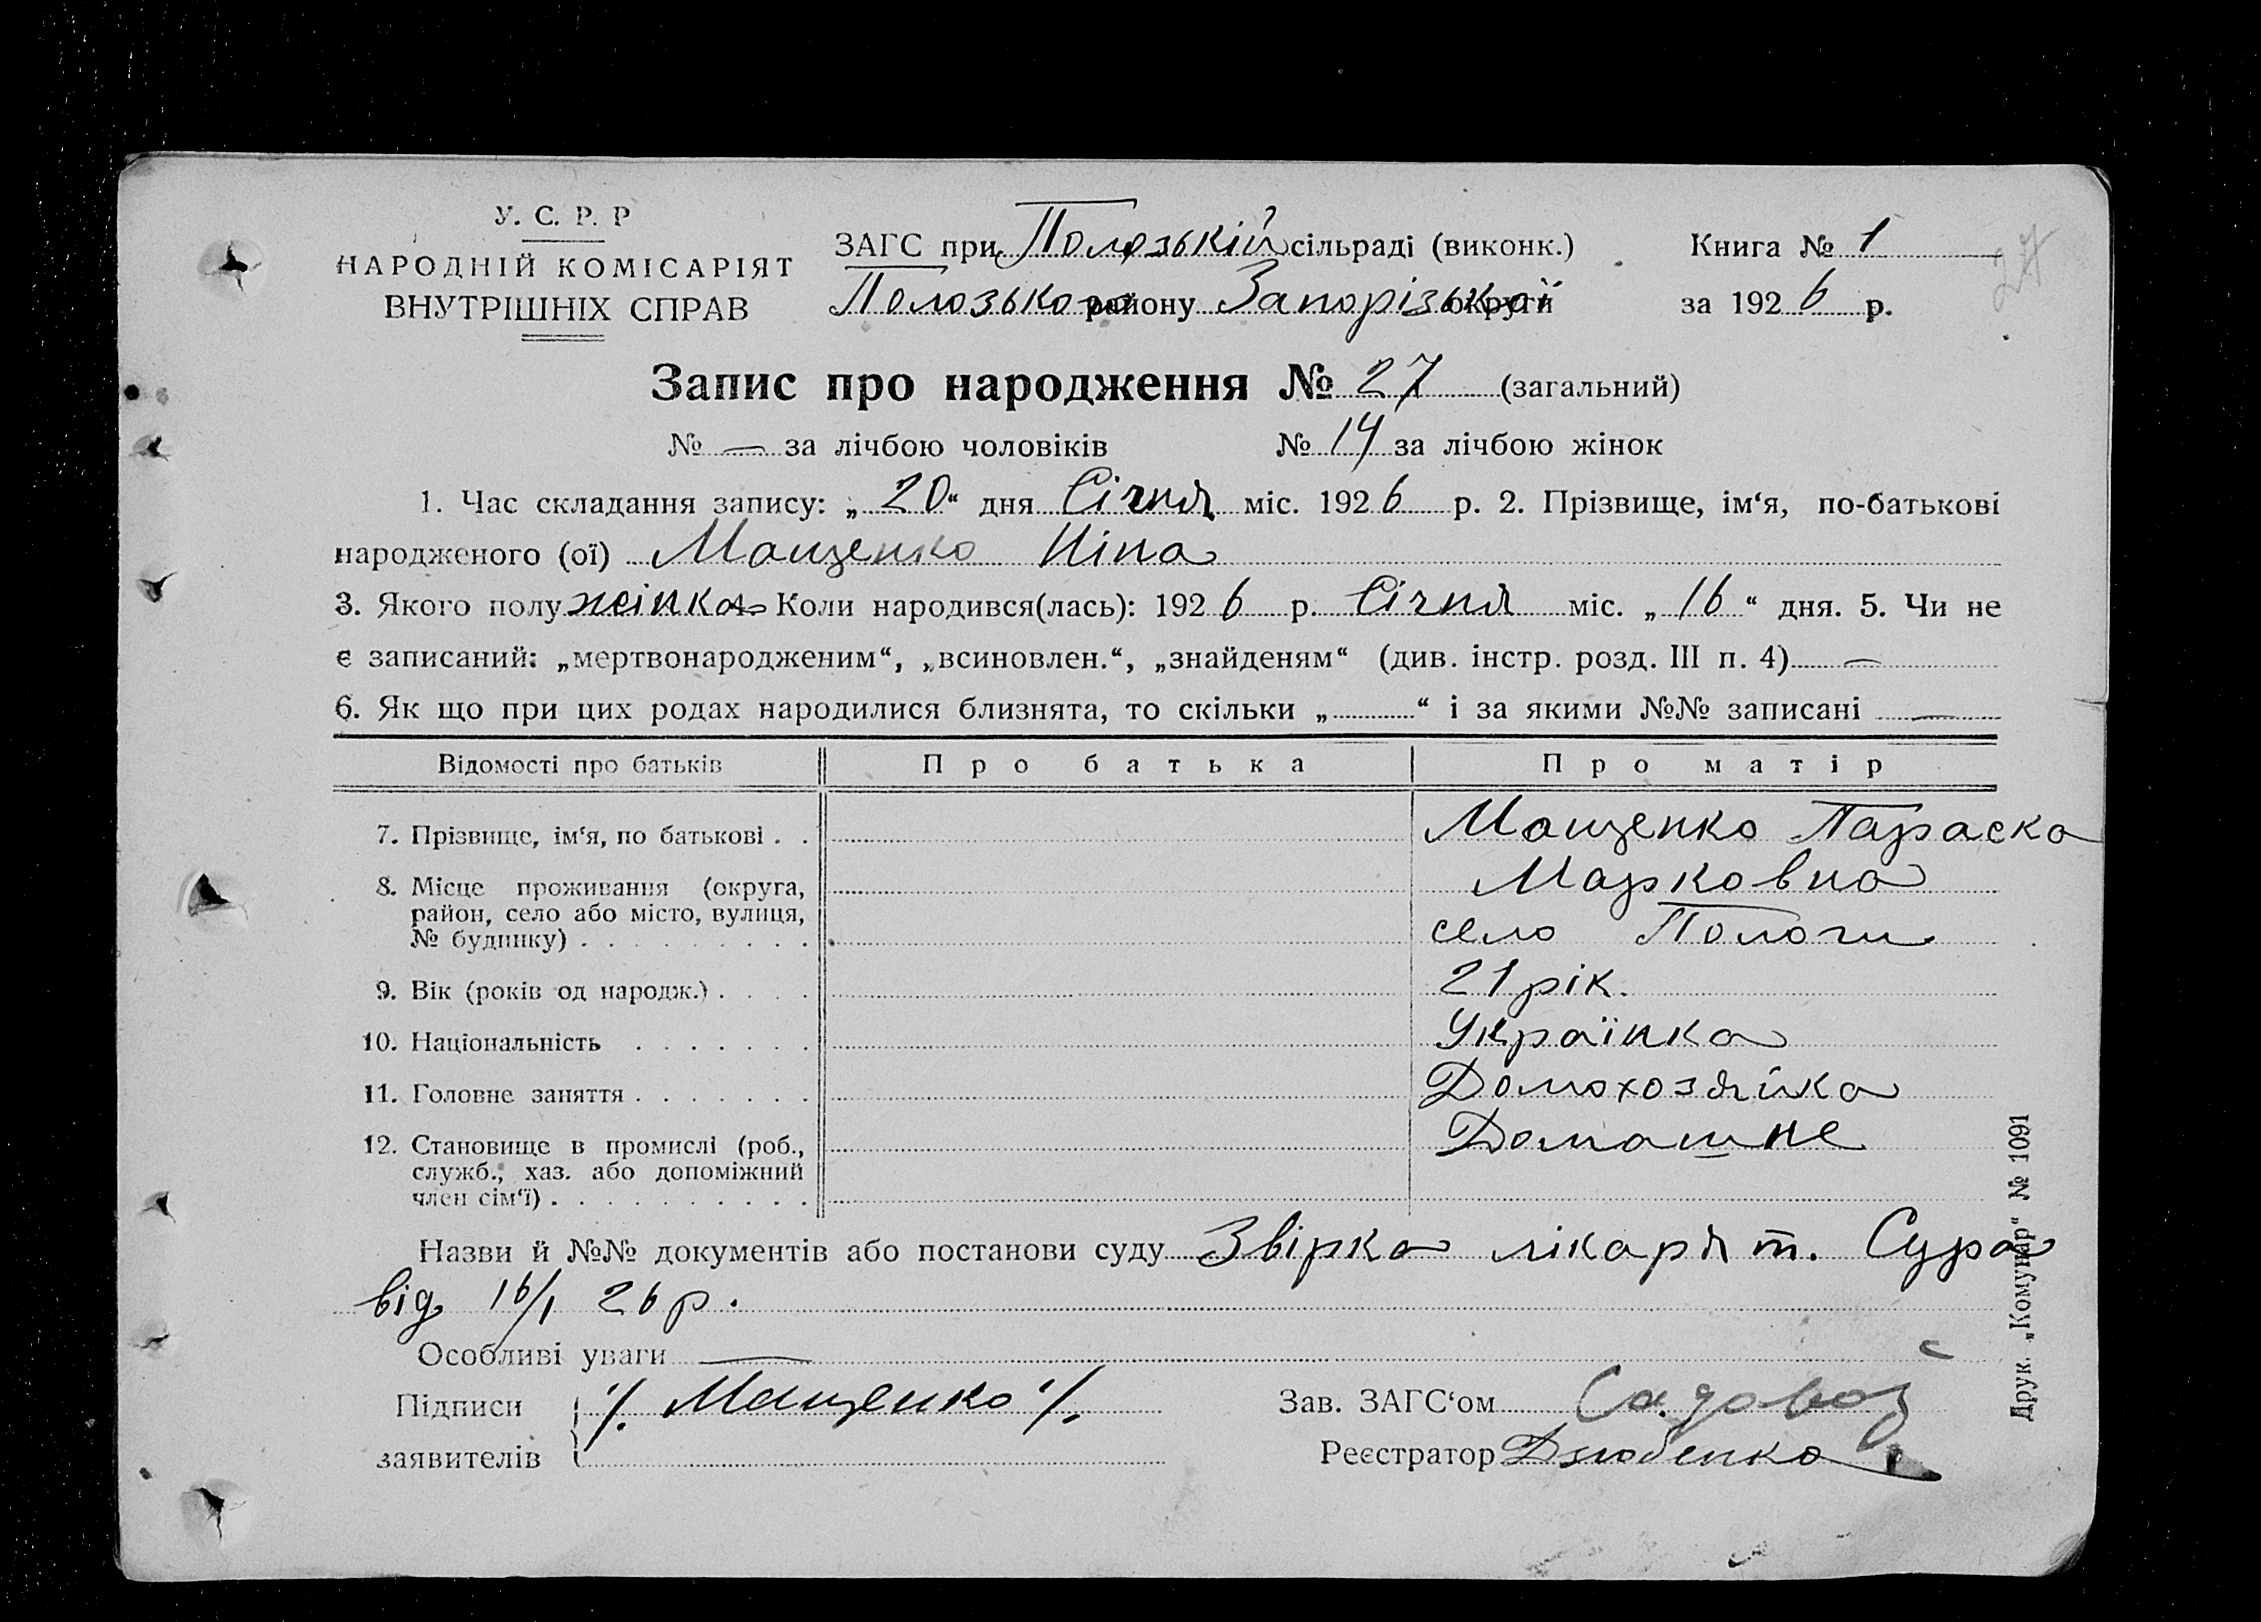 У. С. Р. Р
НАРОДНІЙ КОМІСАРІЯТ
ВНУТРІШНІХ СПРАВ
ЗАГС при Полозькій сільраді (виконк.)
Полозького району Запорізької округи
Книга № 1
за 1926 р.
27
Запис про народження № 27 (загальний)
№ — за лічбою чоловіків № 14 за лічбою жінок
1. Час складання запису: „20“ дня Січня міс. 1926 р. 2. Прізвище, ім‘я, по-батькові
народженого (ої) Мащенко Ніна
3. Якого полу жінка 4. Коли народився(лась): 1926 р. Січня міс. „16“ дня. 5. Чи не
є записаний: „мертвонародженим“, „всиновлен.“, „знайденям“ (див. інстр. розд. III п. 4) —
6. Як що при цих родах народилися близнята, то скільки „ “ і за якими №№ записані —
Відомості про батьків Про батька Про матір
7. Прізвище, ім‘я, по батькові . . Мащенко Параска
Марковна
8. Місце проживання (округа,
район, село або місто, вулиця,
№ будинку) . . . . . . . . . село Пологи
9. Вік (років од народж.) . . . . 21 рік.
10. Національність . . . . . . . Українка
11. Головне заняття . . . . . . . Домохозяйка
12. Становище в промислі (роб., Домашне
служб., хаз. або допоміжний
член сім‘ї) . . . . . . . . . .
Назви й №№ документів або постанови суду Звірка лікаря т. Сура
від 16/I 26 р.
Особливі уваги —
Підписи
заявителів
/. Мащенко /.
Зав. ЗАГС‘ом Садовой
Реєстратор Дзюбенко
Друк. „Комунар“ № 1091